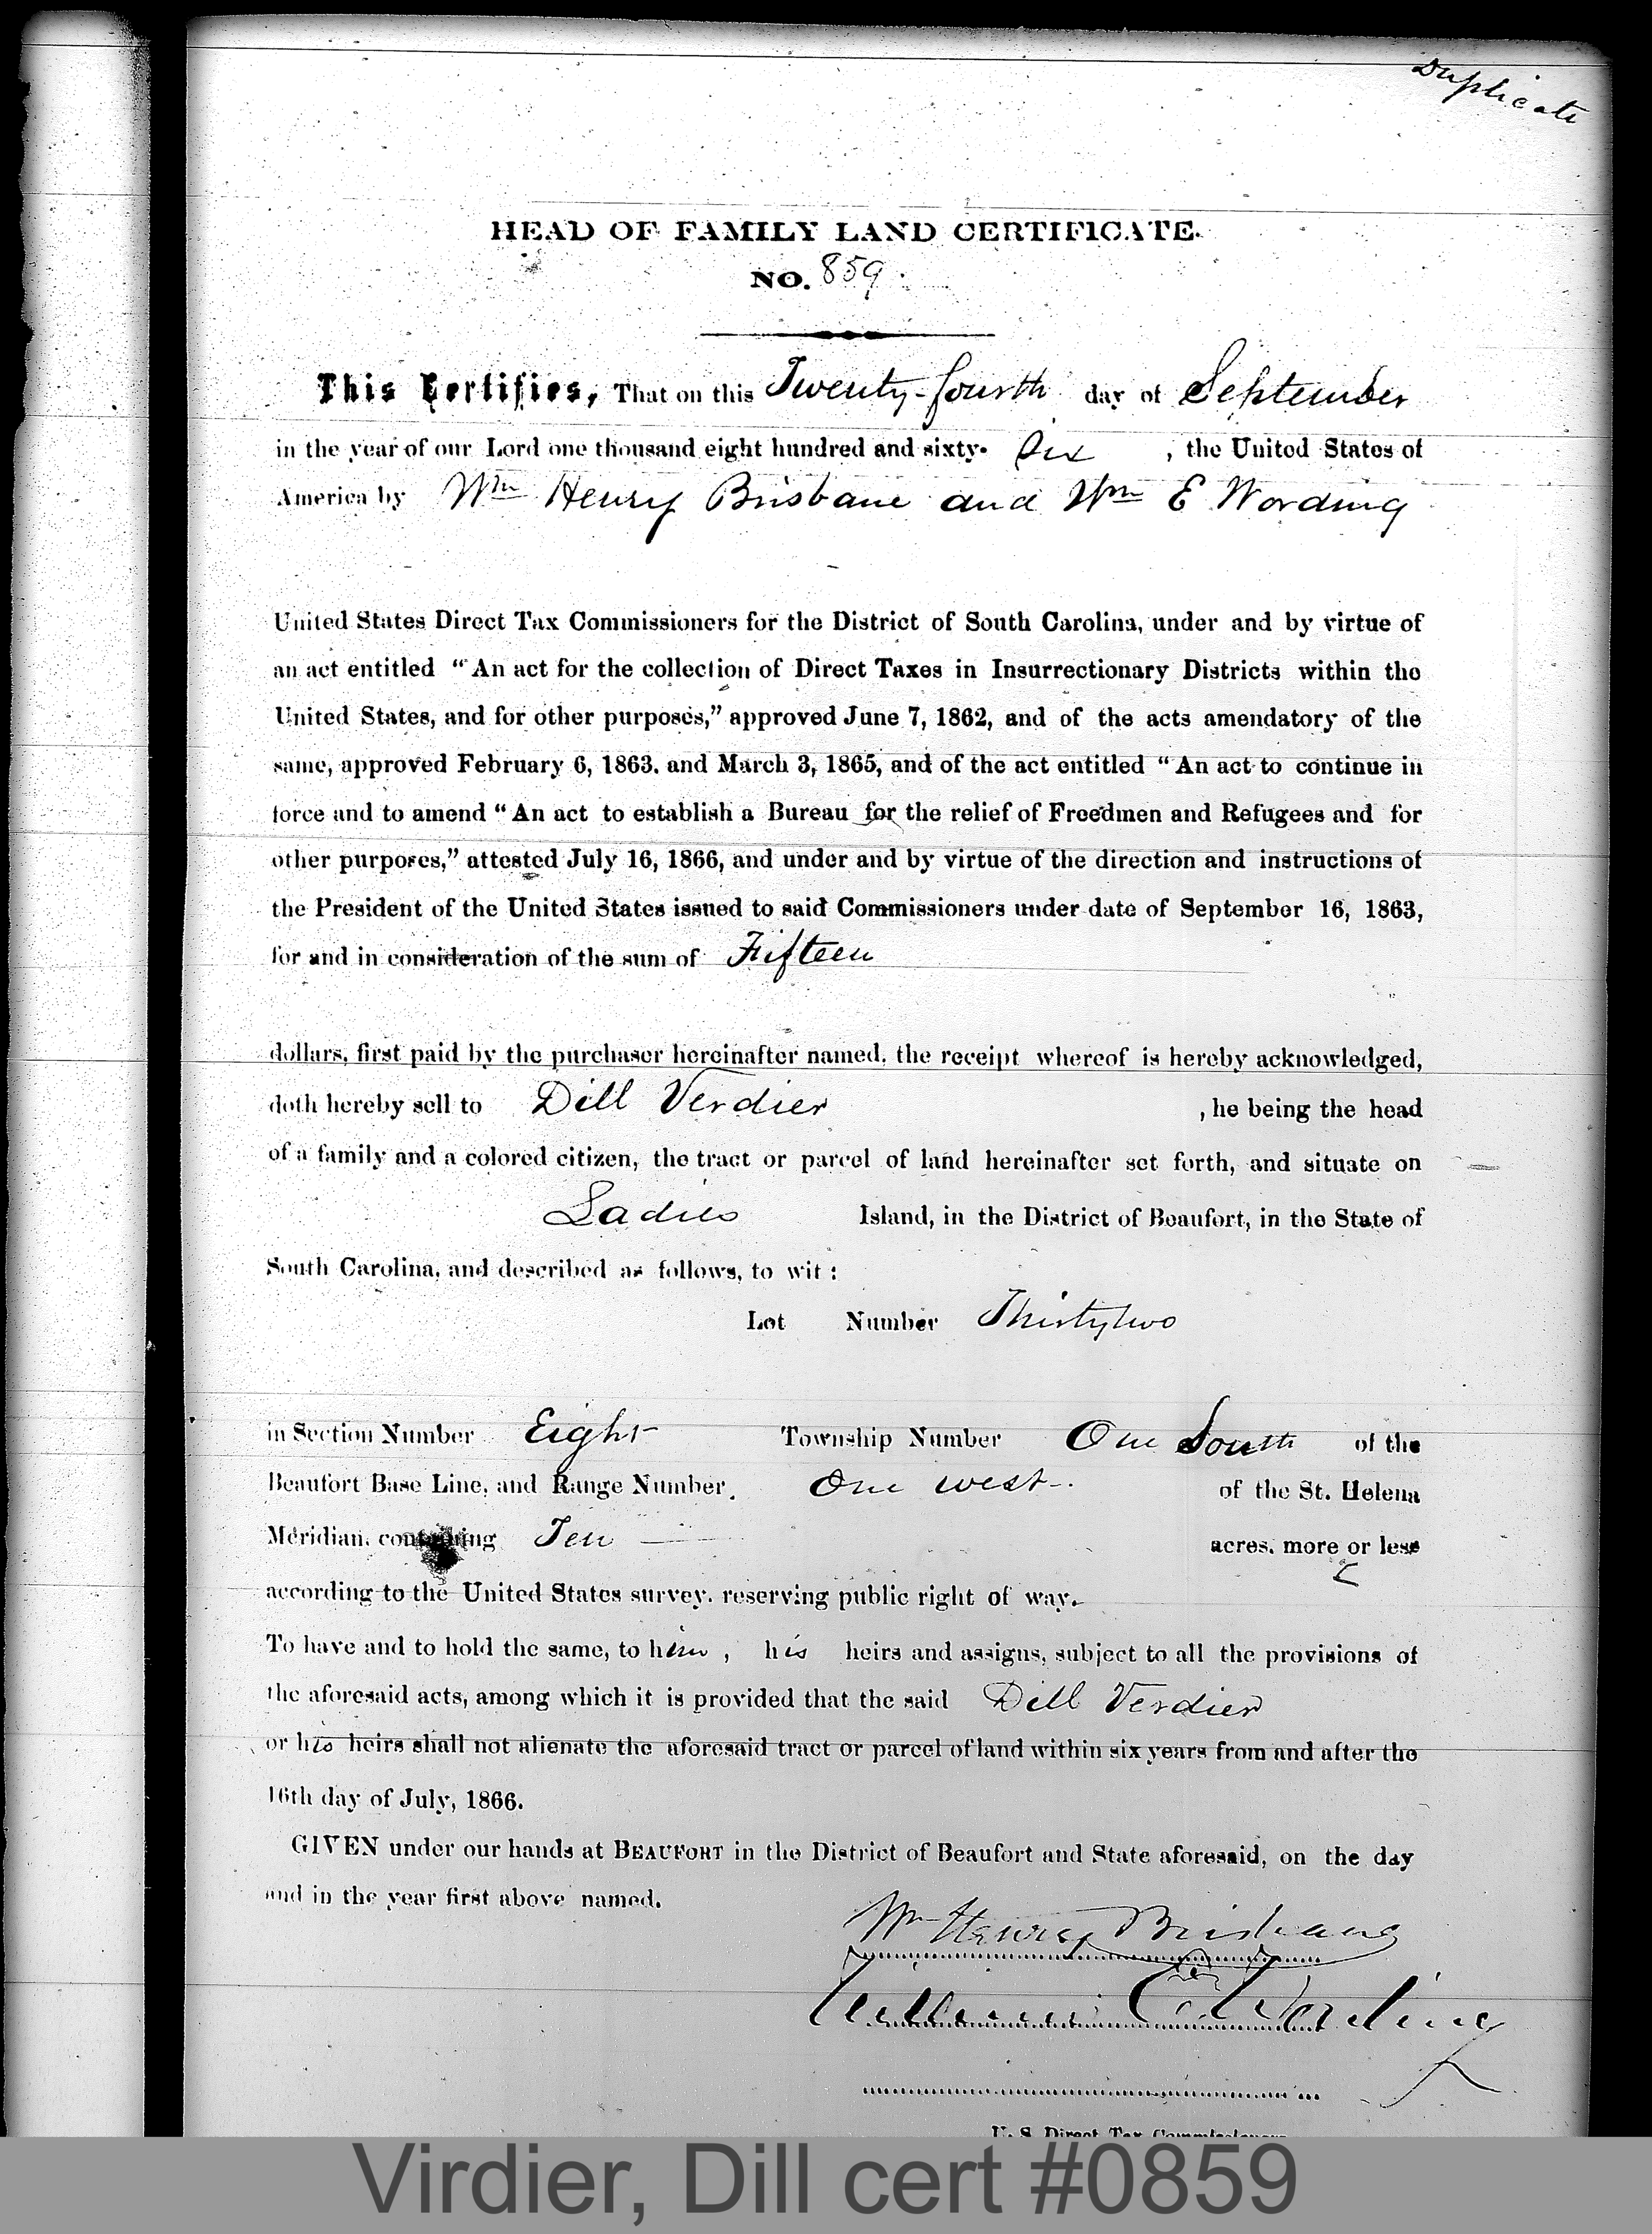 Duplicate
HEAD OF FAMILY LAND CERTIFICATE.
NO. 859.
This Certifies, That on this Twenty-fourth day of September
in the year of our Lord one thousand eight hundred and sixty- Six , the United States of
America by Wm Henry Brisbane and Wm E Wording
United States Direct Tax Commissioners for the District of South Carolina, under and by virtue of
an act entitled “An act for the collection of Direct Taxes in Insurrectionary Districts within the
United States, and for other purposes,” approved June 7, 1862, and of the acts amendatory of the
same, approved February 6, 1863. and March 3, 1865, and of the act entitled “An act to continue in
force and to amend “An act to establish a Bureau for the relief of Freedmen and Refugees and for
other purposes,” attested July 16, 1866, and under and by virtue of the direction and instructions of
the President of the United States issued to said Commissioners under date of September 16, 1863,
for and in consideration of the sum of Fifteen
dollars, first paid by the purchaser hereinafter named, the receipt whereof is hereby acknowledged,
doth hereby sell to Dill Verdier , he being the head
of a family and a colored citizen, the tract or parcel of land hereinafter set forth, and situate on
Ladies Island, in the District of Beaufort, in the State of
South Carolina, and described as follows, to wit :
Lot Number Thirtytwo
in Section Number Eight Township Number One South of the
Beaufort Base Line, and Range Number. One west of the St. Helena
Meridian, containing Ten acres, more or less
according to the United States survey, reserving public right of way.
To have and to hold the same, to him , his heirs and assigns, subject to all the provisions of
the aforesaid acts, among which it is provided that the said Dill Verdier
or his heirs shall not alienate the aforesaid tract or parcel of land within six years from and after the
16th day of July, 1866.
GIVEN under our hands at BEAUFORT in the District of Beaufort and State aforesaid, on the day
and in the year first above named.
Wm Henry Brisbane
William E Wording
U. S. Direct Tax Commissioners
Virdier, Dill cert #0859